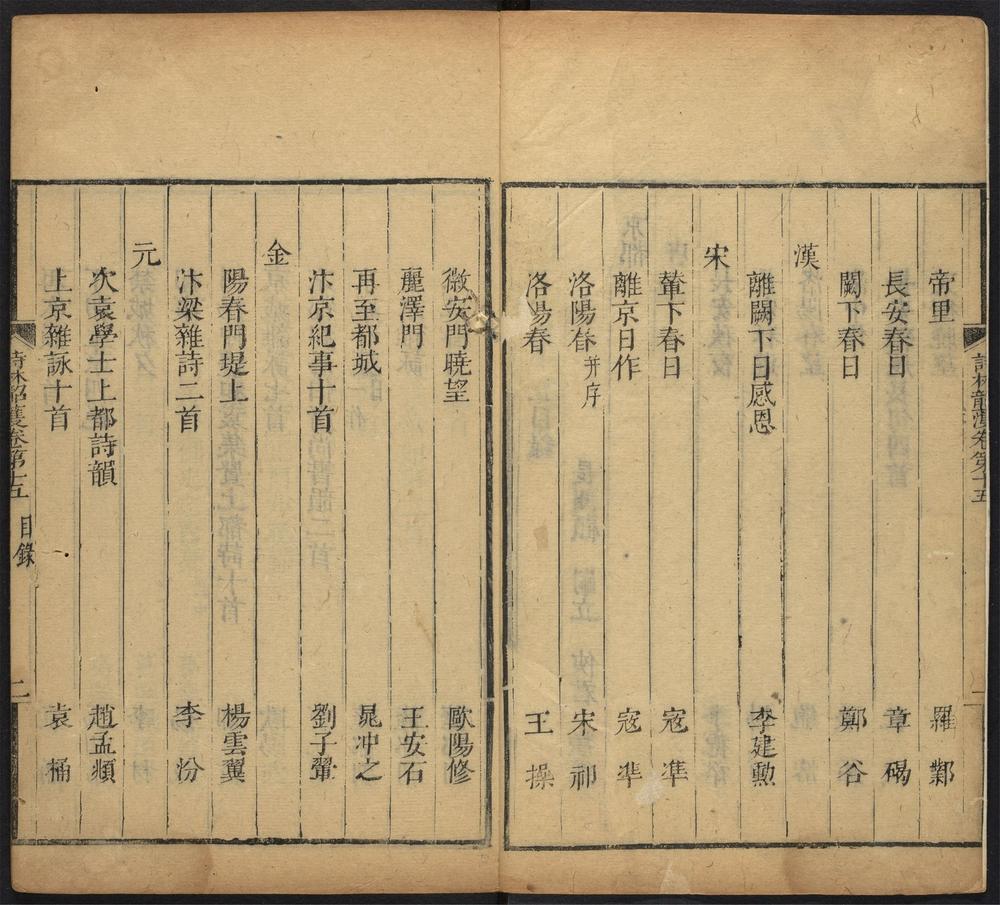 帝里 羅鄴
長安春日 章碣
闕下春日 鄭谷
漢
離闕下日感恩 李建勲
宋
輦下春日 寇準
離京日作 寇準
洛陽春并序 宋祁
洛陽春 王操
詩林韶濩卷第十五 一
徽安門曉望 歐陽修
麗澤門 王安石
再至都城 晁冲之
汴京紀事十首 劉子翬
金
陽春門堤上 楊雲翼
汴梁雜詩二首 李汾
元
次袁學士上都詩韻 趙孟頫
上京雜詠十首 袁桷
詩林韶濩卷第十五 目錄 二